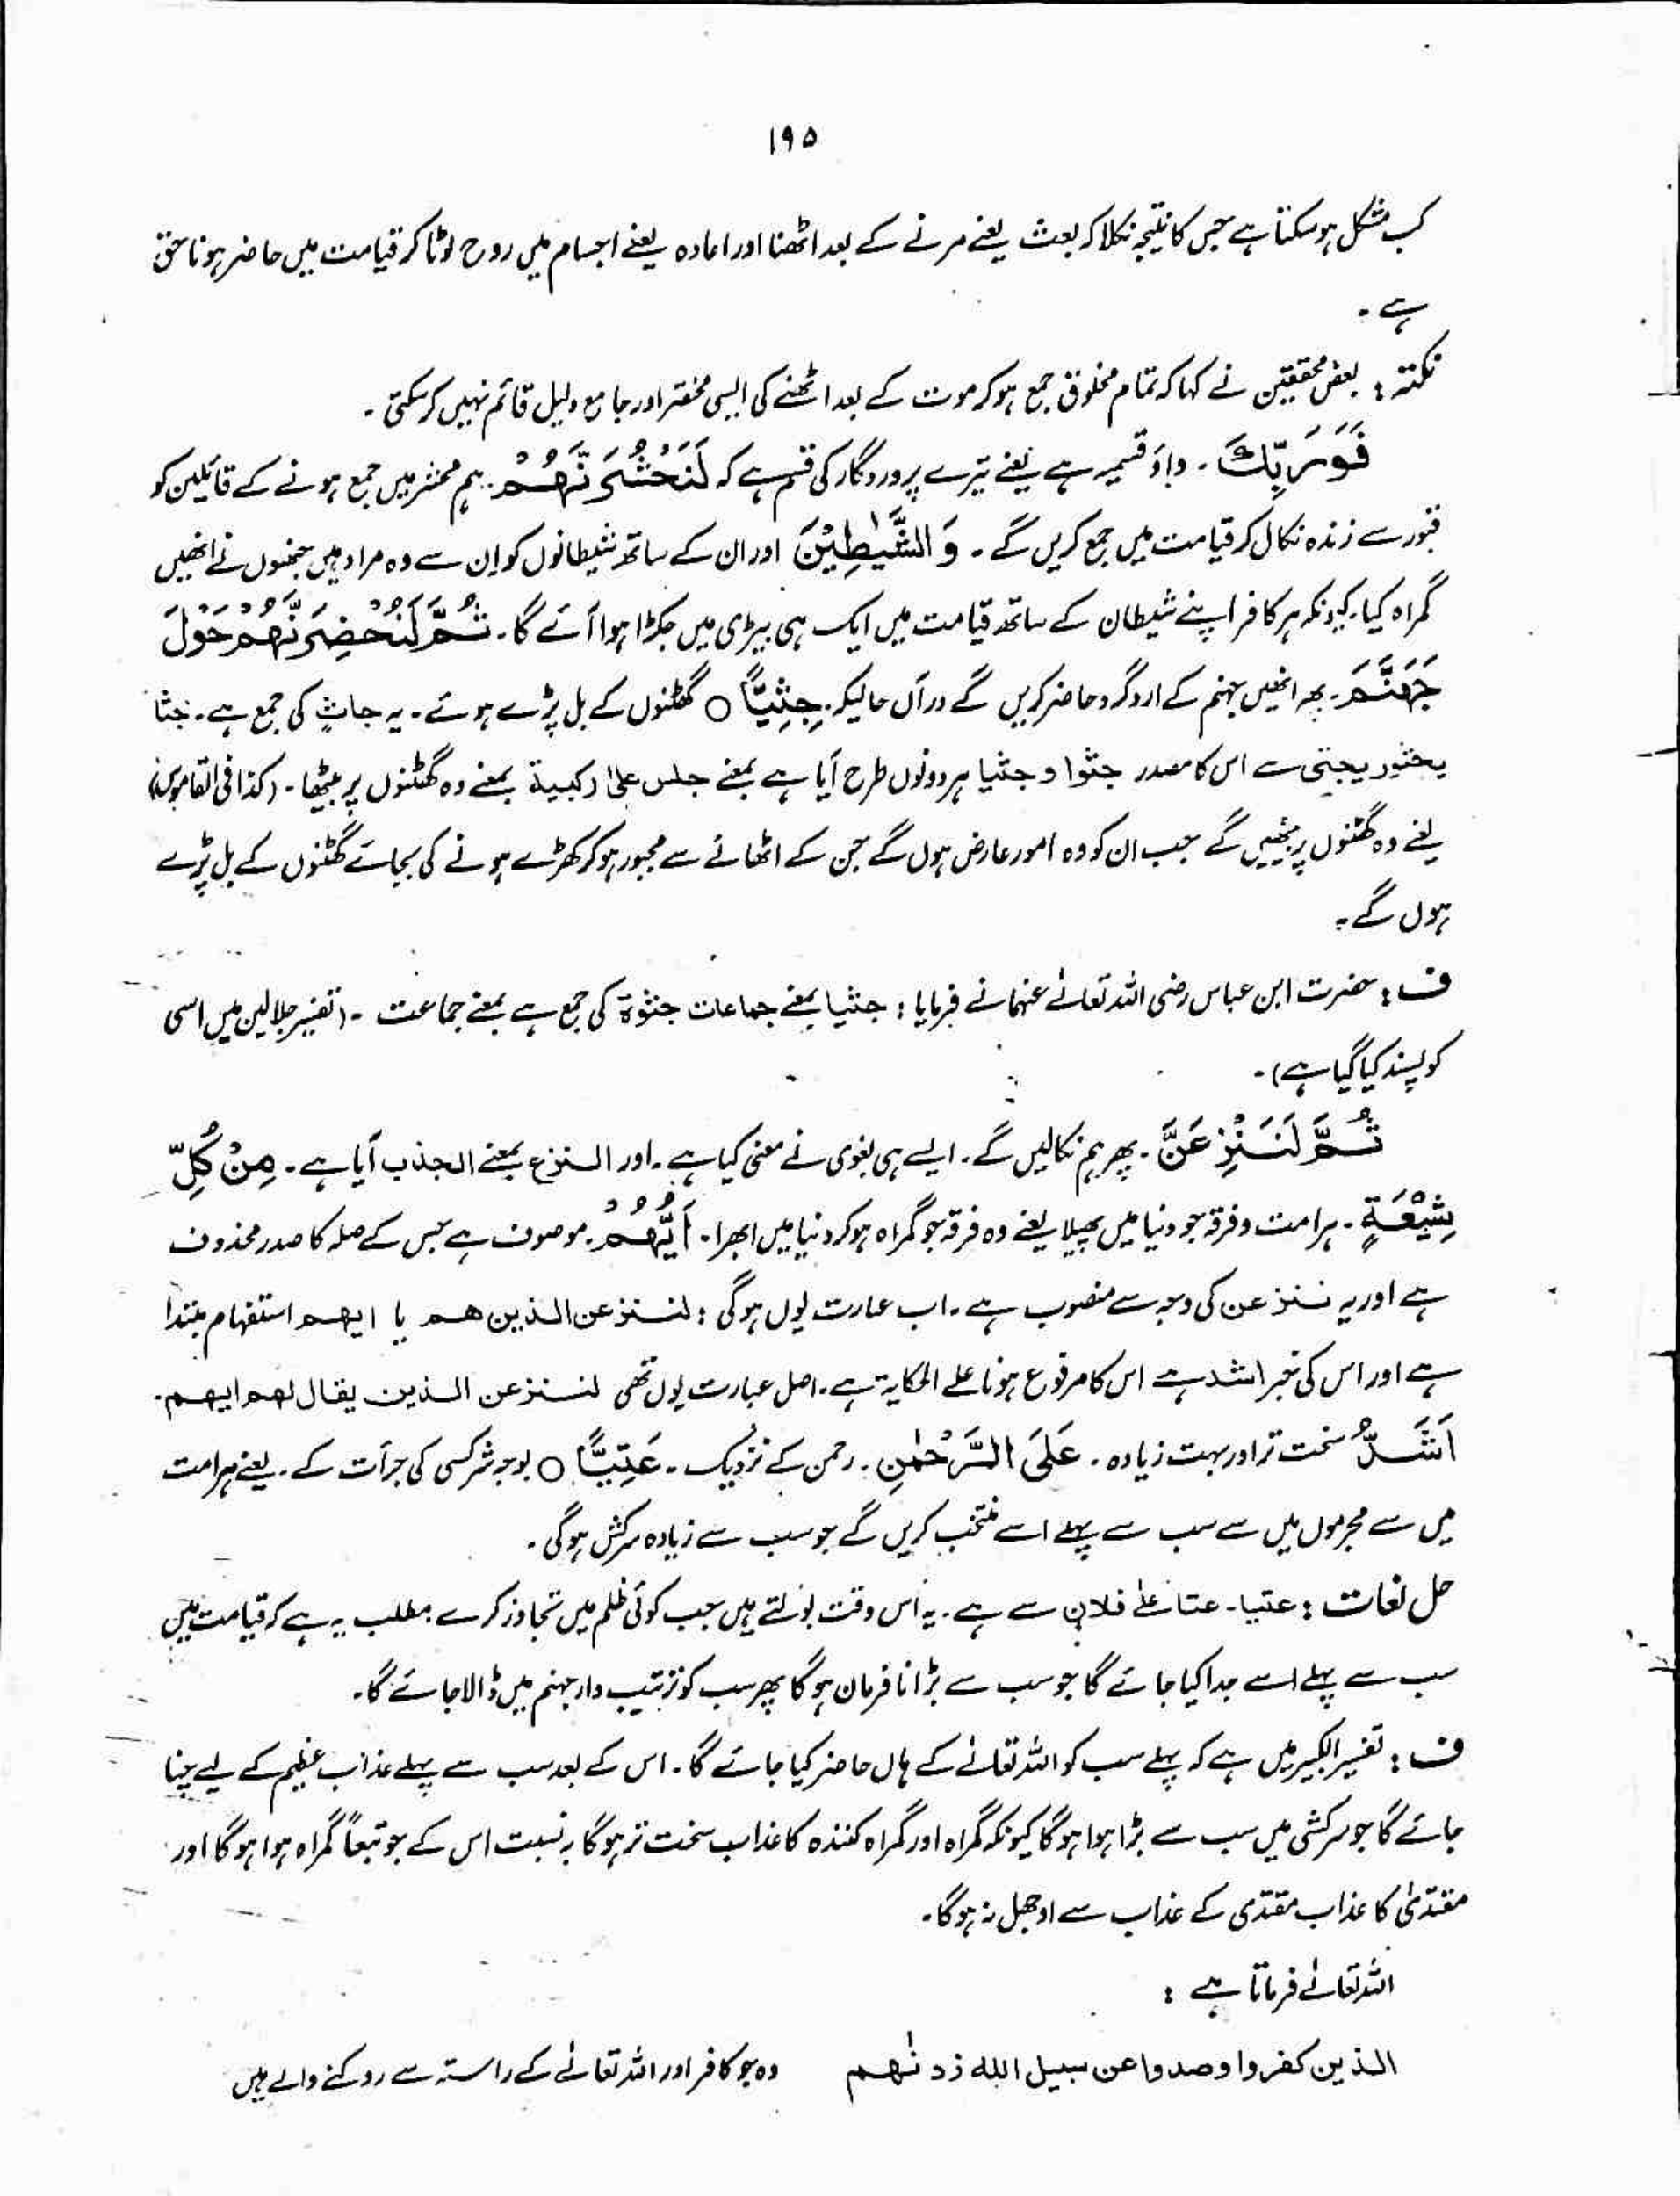 ۱۹۵
کب مشکل ہوسکتا ہے جس کا نتیجہ نکلا کہ بعث یعنے مرنے کے بعد اٹھنا اور اعادہ یعنے اجسام میں روح لوٹا کر قیامت میں حاضر ہونا حق
ہے ۔
نکتہ : بعض محققین نے کہا کہ تمام مخلوق جمع ہو کر موت کے بعد اٹھنے کی ایسی مختصر اور جامع دلیل قائم نہیں کرسکتی ۔
فَوَرَبِّكَ ۔ واؤ قسمیہ ہے یعنے تیرے پروردگار کی قسم ہے کہ لَنَحْشُرَنَّهُمْ ۔ ہم محشر میں جمع ہونے کے قائلین کو
قبور سے زندہ نکال کر قیامت میں جمع کریں گے ۔ وَالشَّيٰطِيْنَ اور ان کے ساتھ شیطانوں کو ان سے وہ مراد ہیں جنھوں نے انھیں
گمراہ کیا۔ کیونکہ ہر کافر اپنے شیطان کے ساتھ قیامت میں ایک ہی بیڑی میں جکڑا ہوا آئے گا ۔ ثُمَّ لَنُحْضِرَنَّهُمْ حَوْلَ
جَهَنَّمَ ۔ پھر انھیں جہنم کے اردگرد حاضر کریں گے درآں حالیکہ ۔ جِثِيًّا ○ گھٹنوں کے بل پڑے ہوئے ۔ یہ جاثٍ کی جمع ہے ۔ جثا
یجثو ریجثی سے اس کا مصدر جثوا و جثیا ہر دونوں طرح آیا ہے بمعنے جلس علیٰ رکبیۃ بمعنے وہ گھٹنوں پر بیٹھا ۔ (کذا فی القاموس)
یعنے وہ گھٹنوں پر بیٹھیں گے جب ان کو وہ امور عارض ہوں گے جن کے اٹھانے سے مجبور ہو کر کھڑے ہونے کی بجائے گھٹنوں کے بل پڑے
ہوں گے ۔
ف : حضرت ابن عباس رضی اللہ تعالےٰ عنہما نے فرمایا : جثیا بمعنے جماعات جثوۃ کی جمع ہے بمعنے جماعت ۔ (تفسیر جلالین میں اسی
کو پسند کیا گیا ہے) ۔
ثُمَّ لَنَنْزِعَنَّ ۔ پھر ہم نکالیں گے ۔ ایسے ہی بغوی نے معنی کیا ہے ۔ اور النزع بمعنے الجذب آیا ہے ۔ مِنْ كُلِّ
شِيْعَةٍ ۔ ہر امت و فرقہ جو دنیا میں پھیلا یعنے وہ فرقہ جو گمراہ ہو کر دنیا میں ابھرا ۔ اَيُّهُمْ ۔ موصوف ہے جس کے صلہ کا صدر محذوف
ہے اور یہ ننزعن کی وجہ سے منصوب ہے ۔ اب عبارت یوں ہوگی : لننزعن الذین هم یا ایهم استفہام مبتدا
ہے اور اس کی خبر اشد ہے اس کا مرفوع ہونا علے الحکایۃ ہے ۔ اصل عبارت یوں تھی لننزعن الذین یقال لهم ایهم ۔
اَشَدُّ سخت تر اور بہت زیادہ ۔ عَلَى الرَّحْمٰنِ ۔ رحمن کے نزدیک ۔ عَتِيًّا ○ بوجہ سرکشی کی جرأت کے ۔ یعنے ہر امت
میں سے مجرموں میں سے سب سے پہلے اسے منتخب کریں گے جو سب سے زیادہ سرکش ہوگی ۔
حل لغات : عتیا ۔ عتا علےٰ فلان سے ہے ۔ یہ اس وقت بولتے ہیں جب کوئی ظلم میں تجاوز کرے ۔ مطلب یہ ہے کہ قیامت میں
سب سے پہلے اسے جدا کیا جائے گا جو سب سے بڑا نافرمان ہوگا پھر سب کو ترتیب وار جہنم میں ڈالا جائے گا ۔
ف : تفسیر الکبیر میں ہے کہ پہلے سب کو اللہ تعالےٰ کے ہاں حاضر کیا جائے گا ۔ اس کے بعد سب سے پہلے عذاب عظیم کے لیے چنا
جائے گا جو سرکشی میں سب سے بڑا ہوا ہوگا کیونکہ گمراہ اور گمراہ کنندہ کا عذاب سخت تر ہوگا بہ نسبت اس کے جو تبعاً گمراہ ہوا ہوگا اور
مقتدیٰ کا عذاب مقتدی کے عذاب سے اوجھل نہ ہوگا ۔
اللہ تعالےٰ فرماتا ہے :
الذین کفروا وصدوا عن سبیل اللہ زدنٰهم وہ جو کافر اور اللہ تعالےٰ کے راستہ سے روکنے والے ہیں